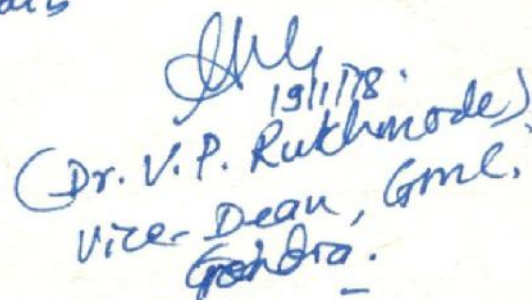 19/1/18.
(Dr. V. P. Rukhmode)
Vice-Dean, GMC.
Gondia.